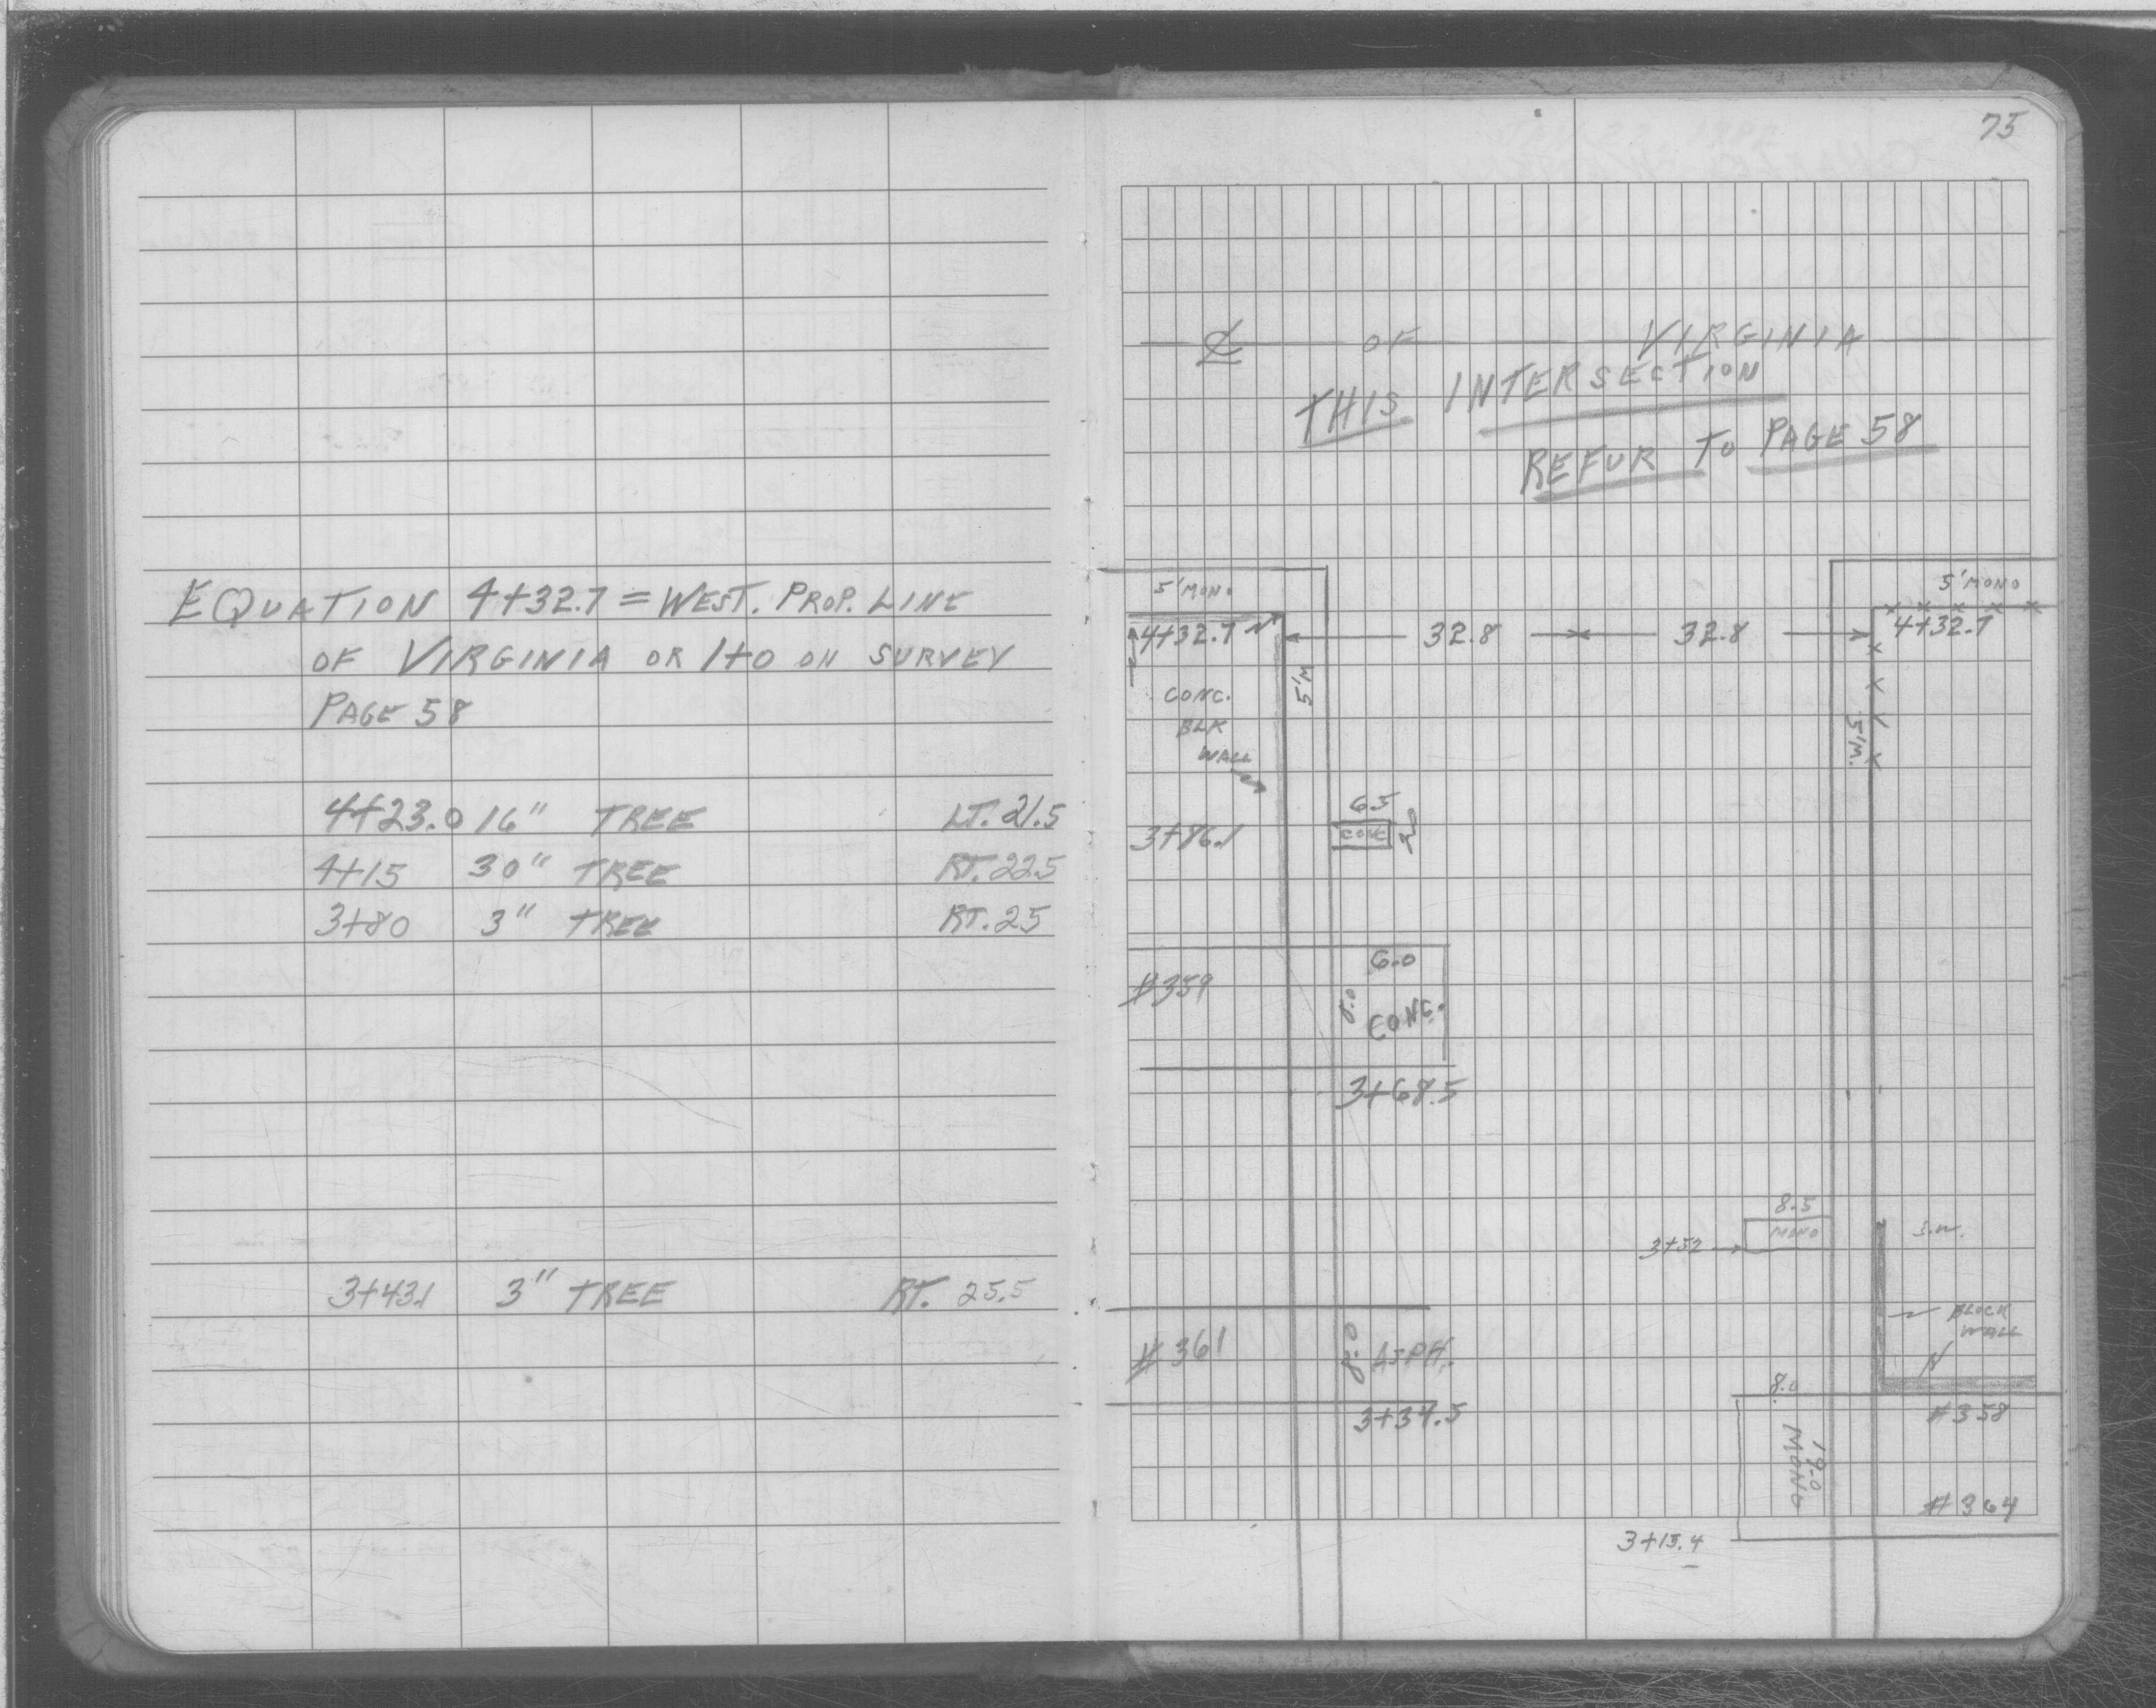 EQUATION 4+32.7 = WEST. PROP. LINE
OF VIRGINIA OR 1+0 ON SURVEY
PAGE 58
4+23.0 16" TREE LT. 21.5
4+15 30" TREE RT. 22.5
3+80 3" TREE RT. 25
3+43.1 3" TREE RT. 25.5
75
℄ OF VIRGINIA
THIS INTERSECTION
REFUR TO PAGE 58
5' MONO
5' MONO
4+32.7
32.8
32.8
4+32.7
5'M
5'M.
CONC.
BLK
WALL
6.5
3+86.1
CONC
#359
6.0
8.0
CONC.
3+68.5
8.5
MONO
3+52
S.W.
BLOCK
WALL
#361
8.0
ASPH.
3+34.5
8.0
#358
19.0
MONO
#364
3+15.4